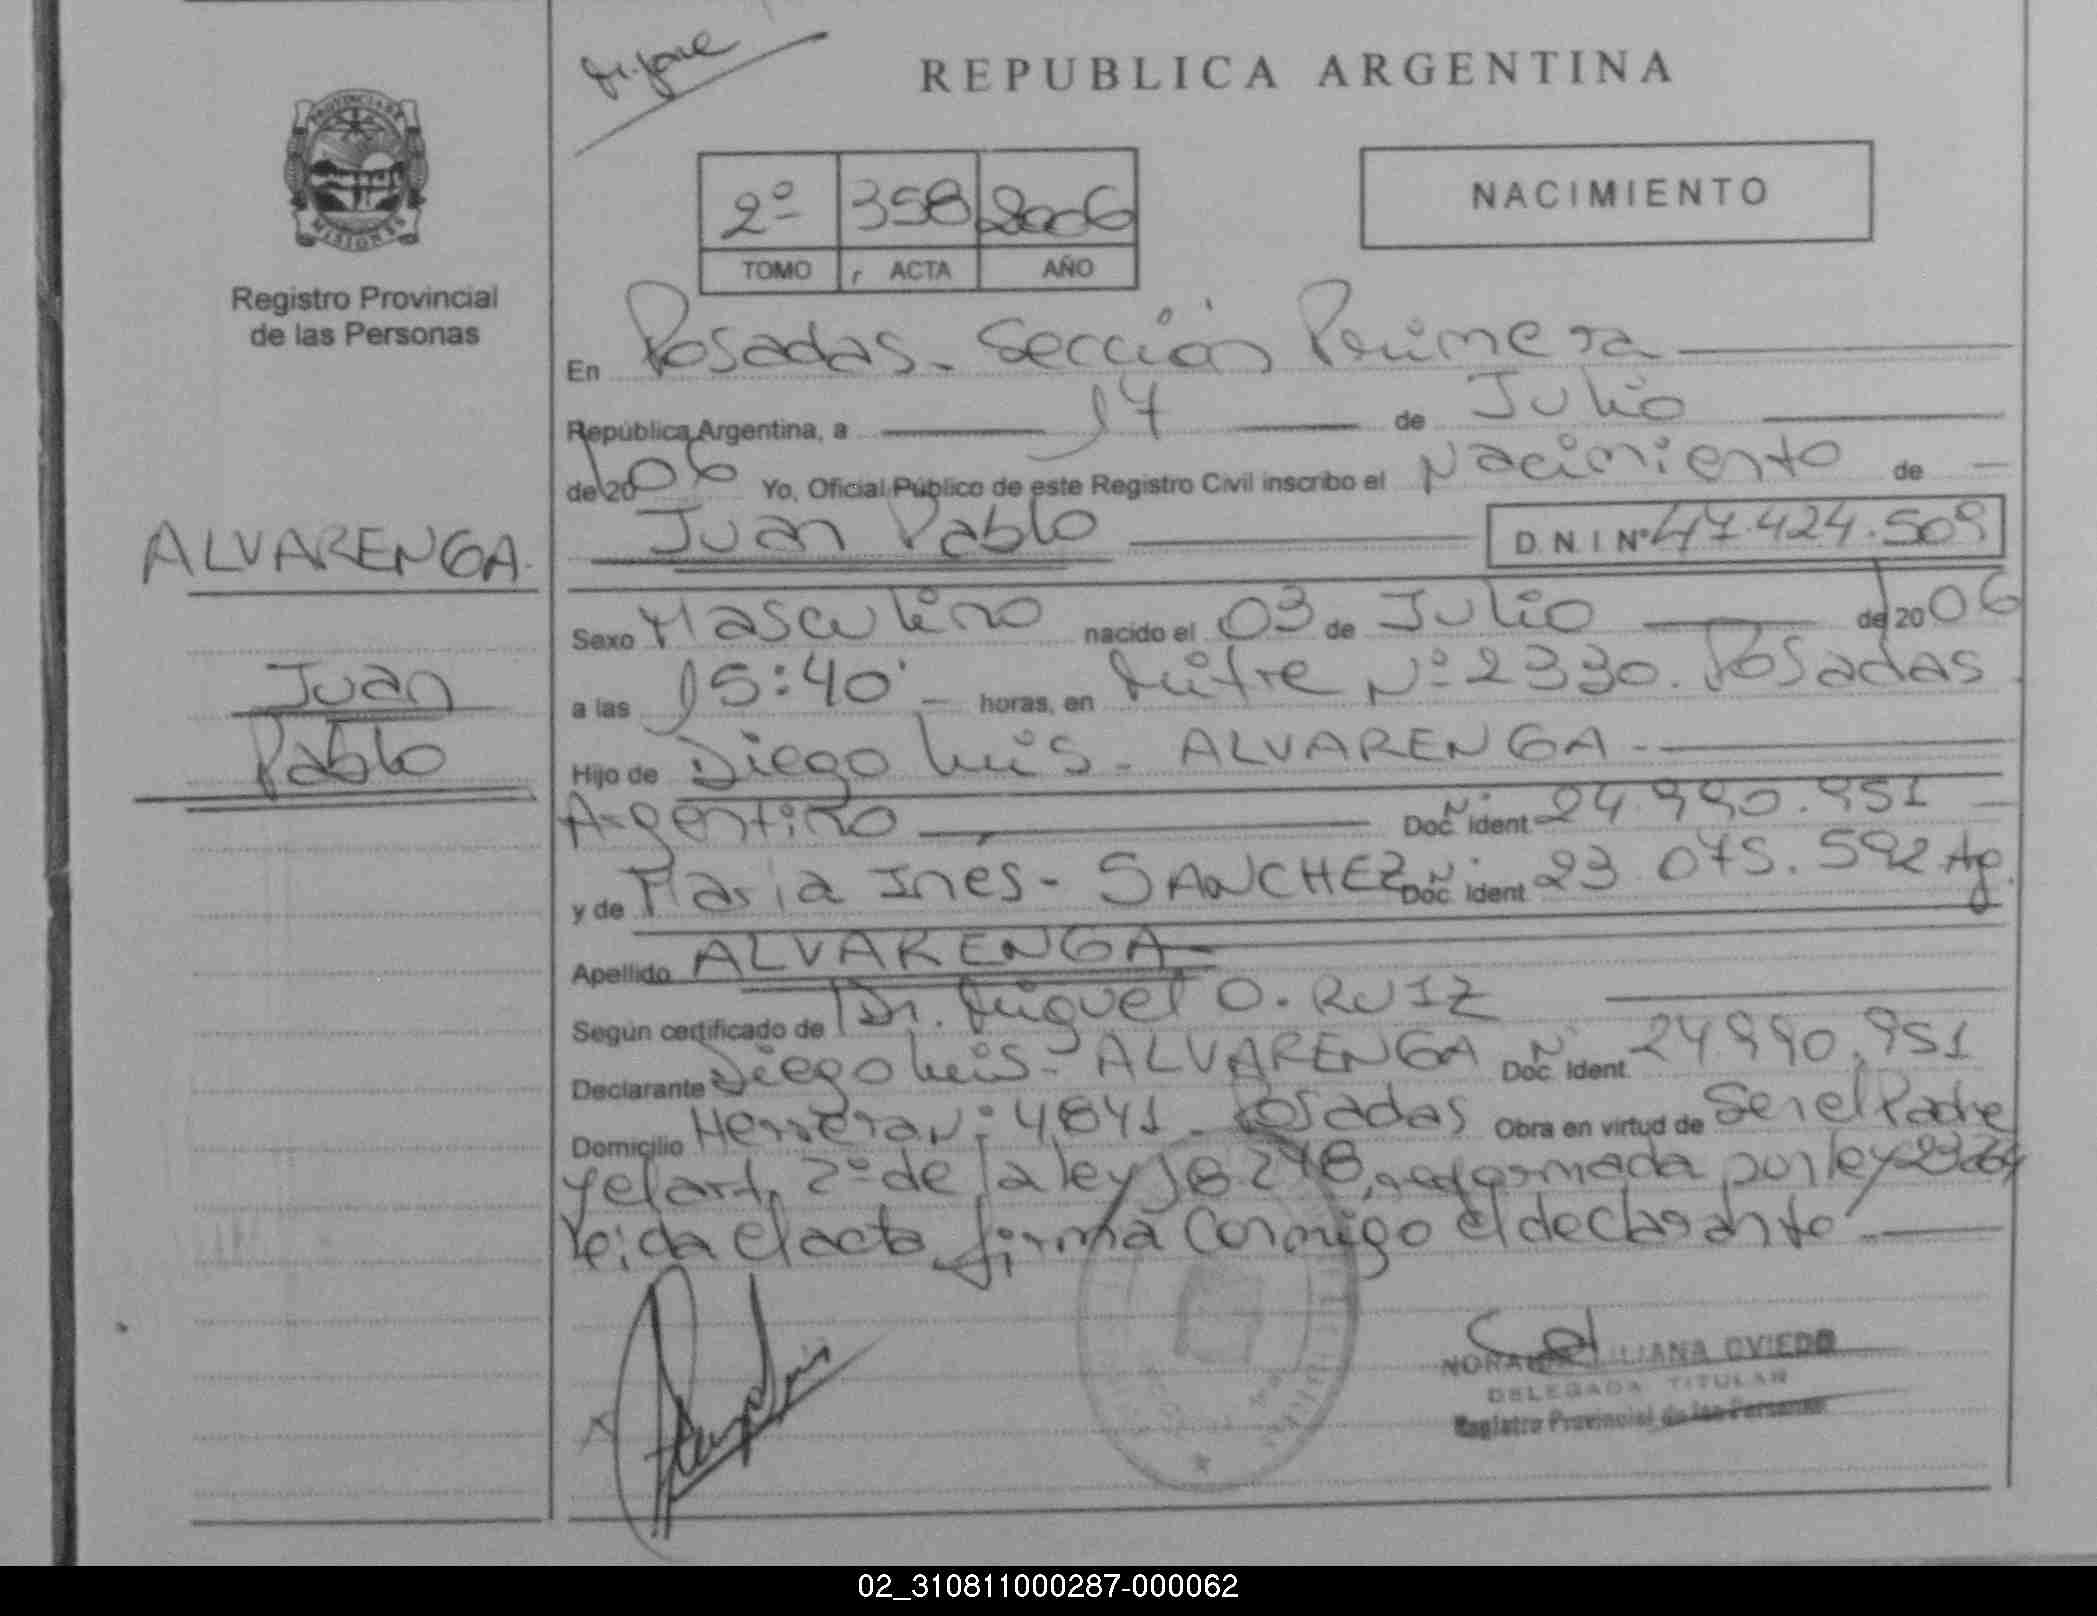 Mitre
REPUBLICA ARGENTINA
PROVINCIA DE
MISIONES
Registro Provincial
de las Personas
2º 358 2006
TOMO ACTA AÑO
NACIMIENTO
En Posadas - Sección Primera
República Argentina, a 17 de Julio
de 2006 Yo, Oficial Público de este Registro Civil inscribo el Nacimiento de
Juan Pablo D N I Nº 47.424.509
ALVARENGA
Juan
Pablo
Sexo Masculino nacido el 03 de Julio de 2006
a las 15:40' horas, en Mitre Nº 2330. Posadas
Hijo de Diego Luis - ALVARENGA
Argentino Doc. Ident 24.990.951
y de Maria Inés - SANCHEZ Nº Doc. Ident 23.075.592 Arg.
Apellido ALVARENGA
Según certificado de Dr. Miguel O. RUIZ
Declarante Diego Luis - ALVARENGA Nº Doc. Ident. 24.990.951
Domicilio Herrera Nº 4841 - Posadas Obra en virtud de Ser el Padre
y el art. 2º de la ley 18.248, reformada por ley
leida el acta firma conmigo el declarante
LILIANA OVIEDO
DELEGADA TITULAR
Registro Provincial de las Personas
02_310811000287-000062